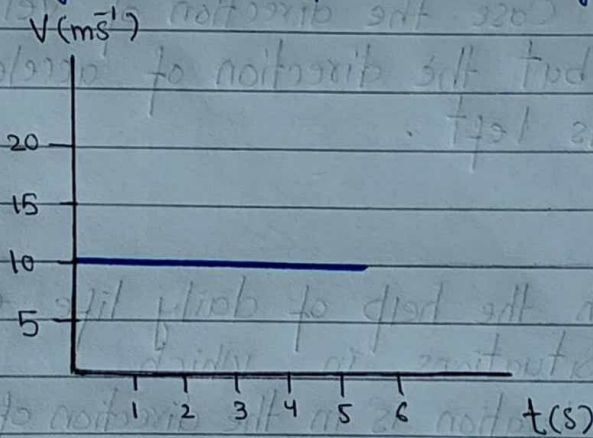 V(ms⁻¹)
20
15
10
5
1 2 3 4 5 6 t(s)